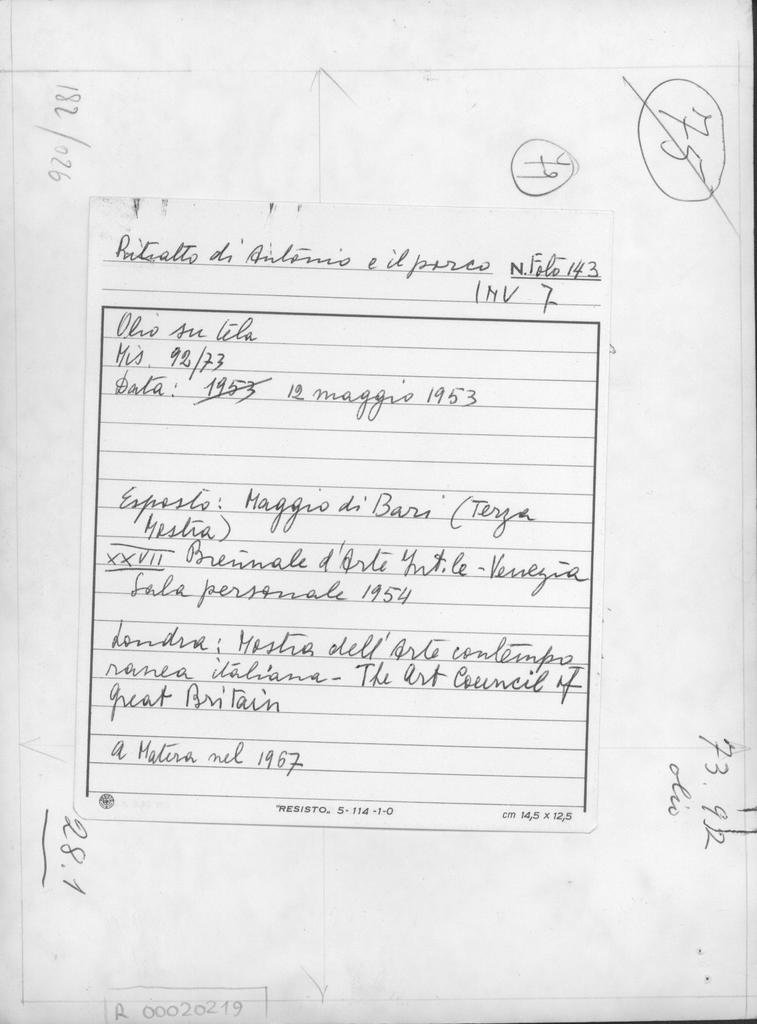 182/026
75
79
Ritratto di Antonio e il porco N. Foto 143
INV 7
Olio su tela
Mis. 92/73
Data: 1953 12 maggio 1953
Esposto: Maggio di Bari (Terza
Mostra)
XXVII Biennale d'Arte Int.le - Venezia
Sala personale 1954
Londra: Mostra dell'Arte contempo
ranea italiana - The Art Council of
great Britain
a Matera nel 1967
"RESISTO" 5-114-1-0
cm 14,5 x 12,5
73.92
olio
28.1
R 00020219